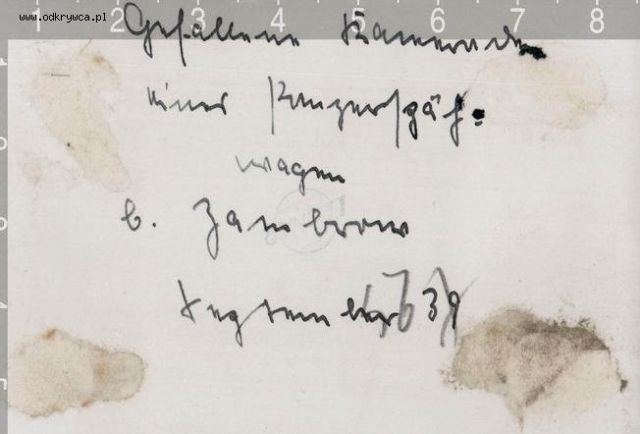 www.odkrywca.pl
1 2 3 4 5 6 7 8
Gefallene Kameraden
eines Panzerspäh-
wagen
b. Zambrow
September 39